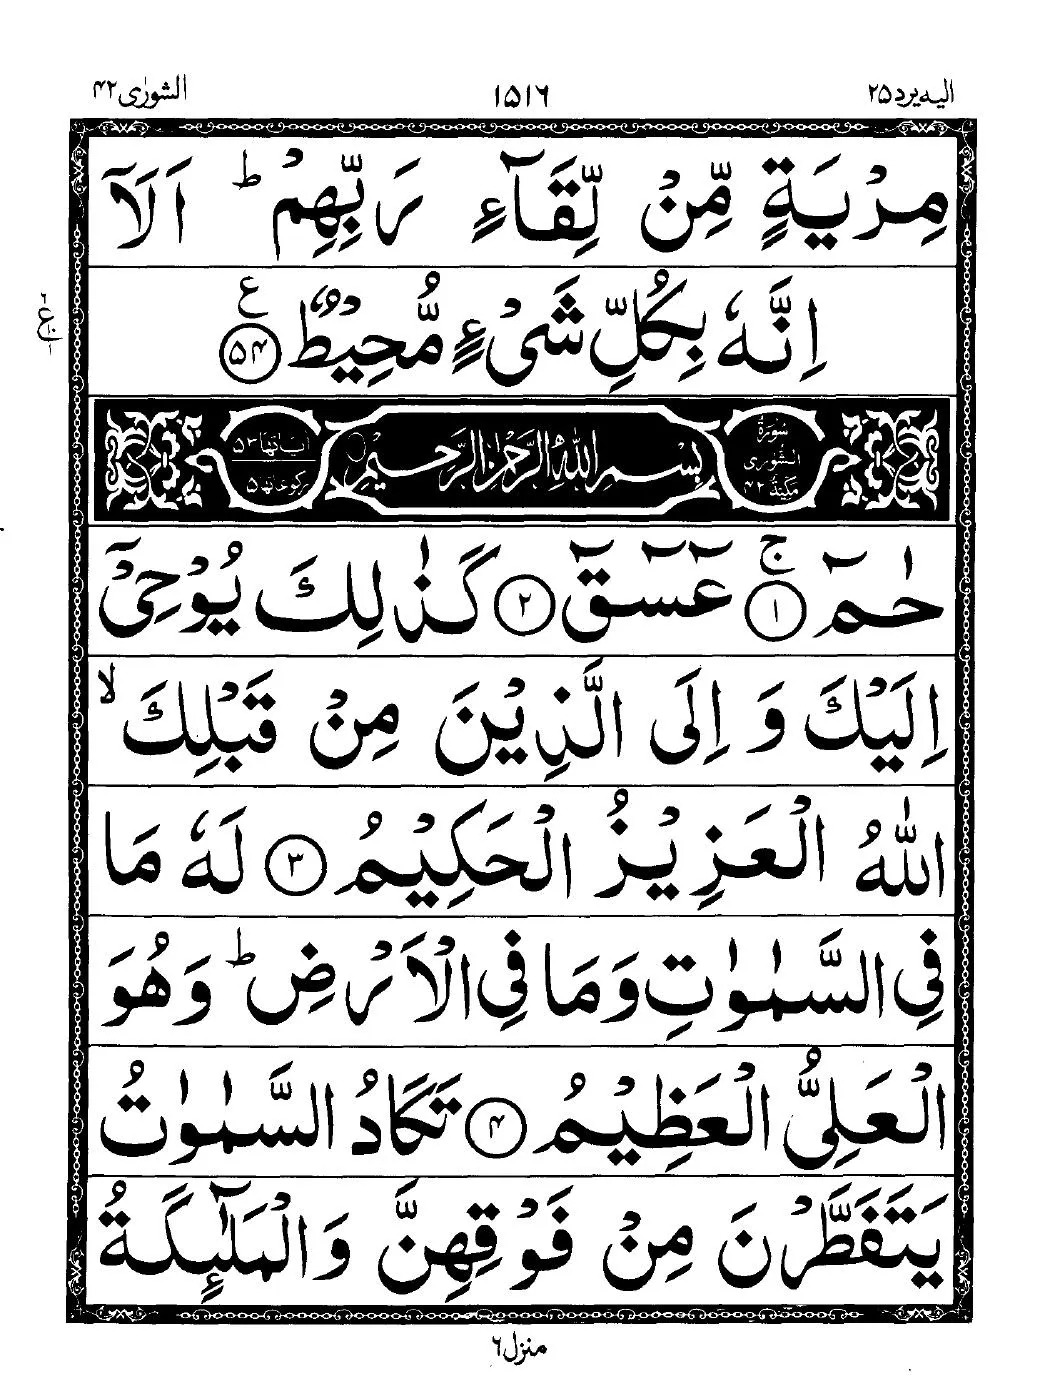 الیه یرد ۲۵
۱۵۱۶
الشورٰی ۴۲
مِرْیَةٍ مِّنْ لِّقَآءِ رَبِّهِمْ ؕ اَلَاۤ
اِنَّهٗ بِكُلِّ شَیْءٍ مُّحِیْطٌ ﴿۵۴﴾ ع
ع
سُوْرَةُ الشُّوْرٰی مَكِّیَّةٌ ۴۲
بِسْمِ اللّٰهِ الرَّحْمٰنِ الرَّحِیْمِ
اٰیاتها ۵۳ ركوعاتها ۵
حٰمٓ ﴿۱﴾ ۚ عٓسٓقٓ ﴿۲﴾ كَذٰلِكَ یُوْحِیْۤ
اِلَیْكَ وَ اِلَی الَّذِیْنَ مِنْ قَبْلِكَ ۙ
اللّٰهُ الْعَزِیْزُ الْحَكِیْمُ ﴿۳﴾ لَهٗ مَا
فِی السَّمٰوٰتِ وَمَا فِی الْاَرْضِ ؕ وَهُوَ
الْعَلِیُّ الْعَظِیْمُ ﴿۴﴾ تَكَادُ السَّمٰوٰتُ
یَتَفَطَّرْنَ مِنْ فَوْقِهِنَّ وَالْمَلٰٓىِٕكَةُ
منزل ۶